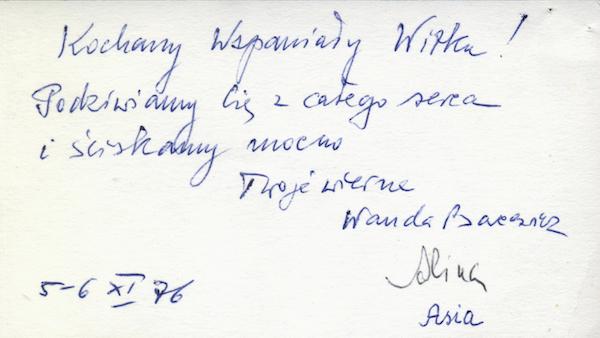 Kochany Wspaniały Witku!
Podziwiamy Cię z całego serca
i ściskamy mocno
Twoje wierne
Wanda Bacewicz
Alina
5-6 XI 76
Asia